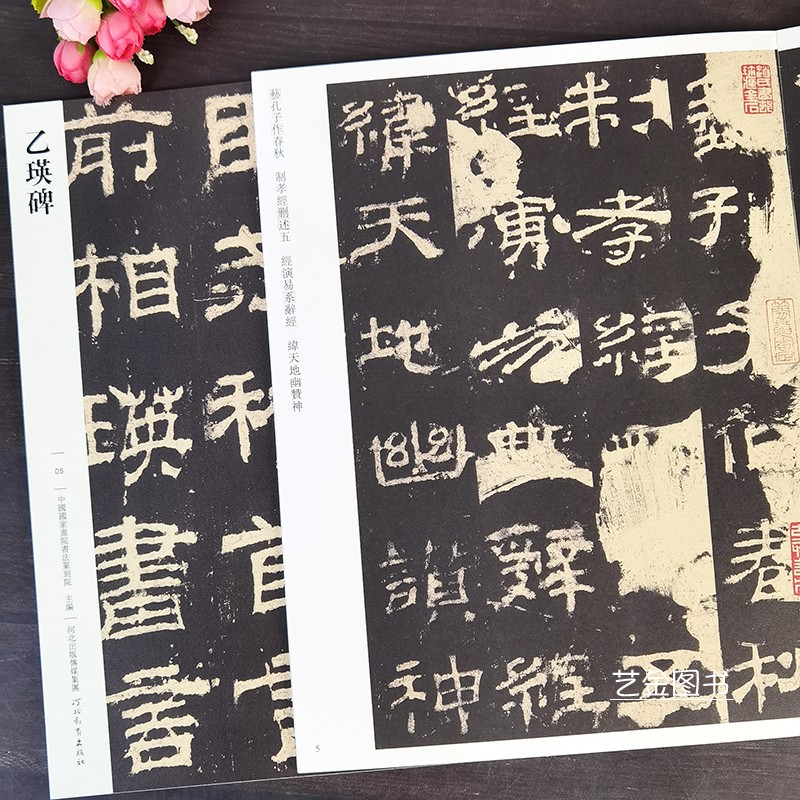 乙瑛碑
05
中國國家畫院書法篆刻院 主編
河北出版傳媒集團
河北教育出版社
前相瑛書言
藝孔子作春秋 制孝經刪述五 經演易系辭經 緯天地幽贊神
子
春秋
制孝經
經演易
辭經
緯天地幽讚神
5
艺金图书